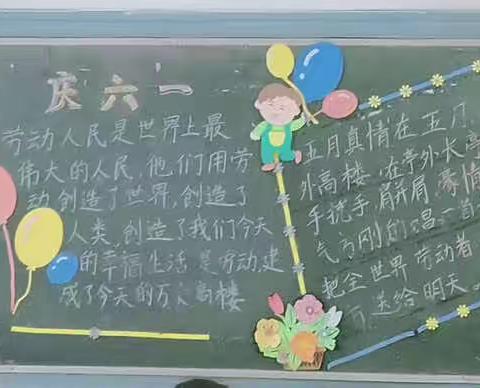 庆六一
劳动人民是世界上最
伟大的人民,他们用劳
动创造了世界,创造了
人类,创造了我们今天
的幸福生活 是劳动,建
成了今天的万人高楼
五月真情在五月
外高楼,在亭外长亭
手挽手,肩并肩,豪情
气万刚的唱一首
把全世界劳动者
送给明天。